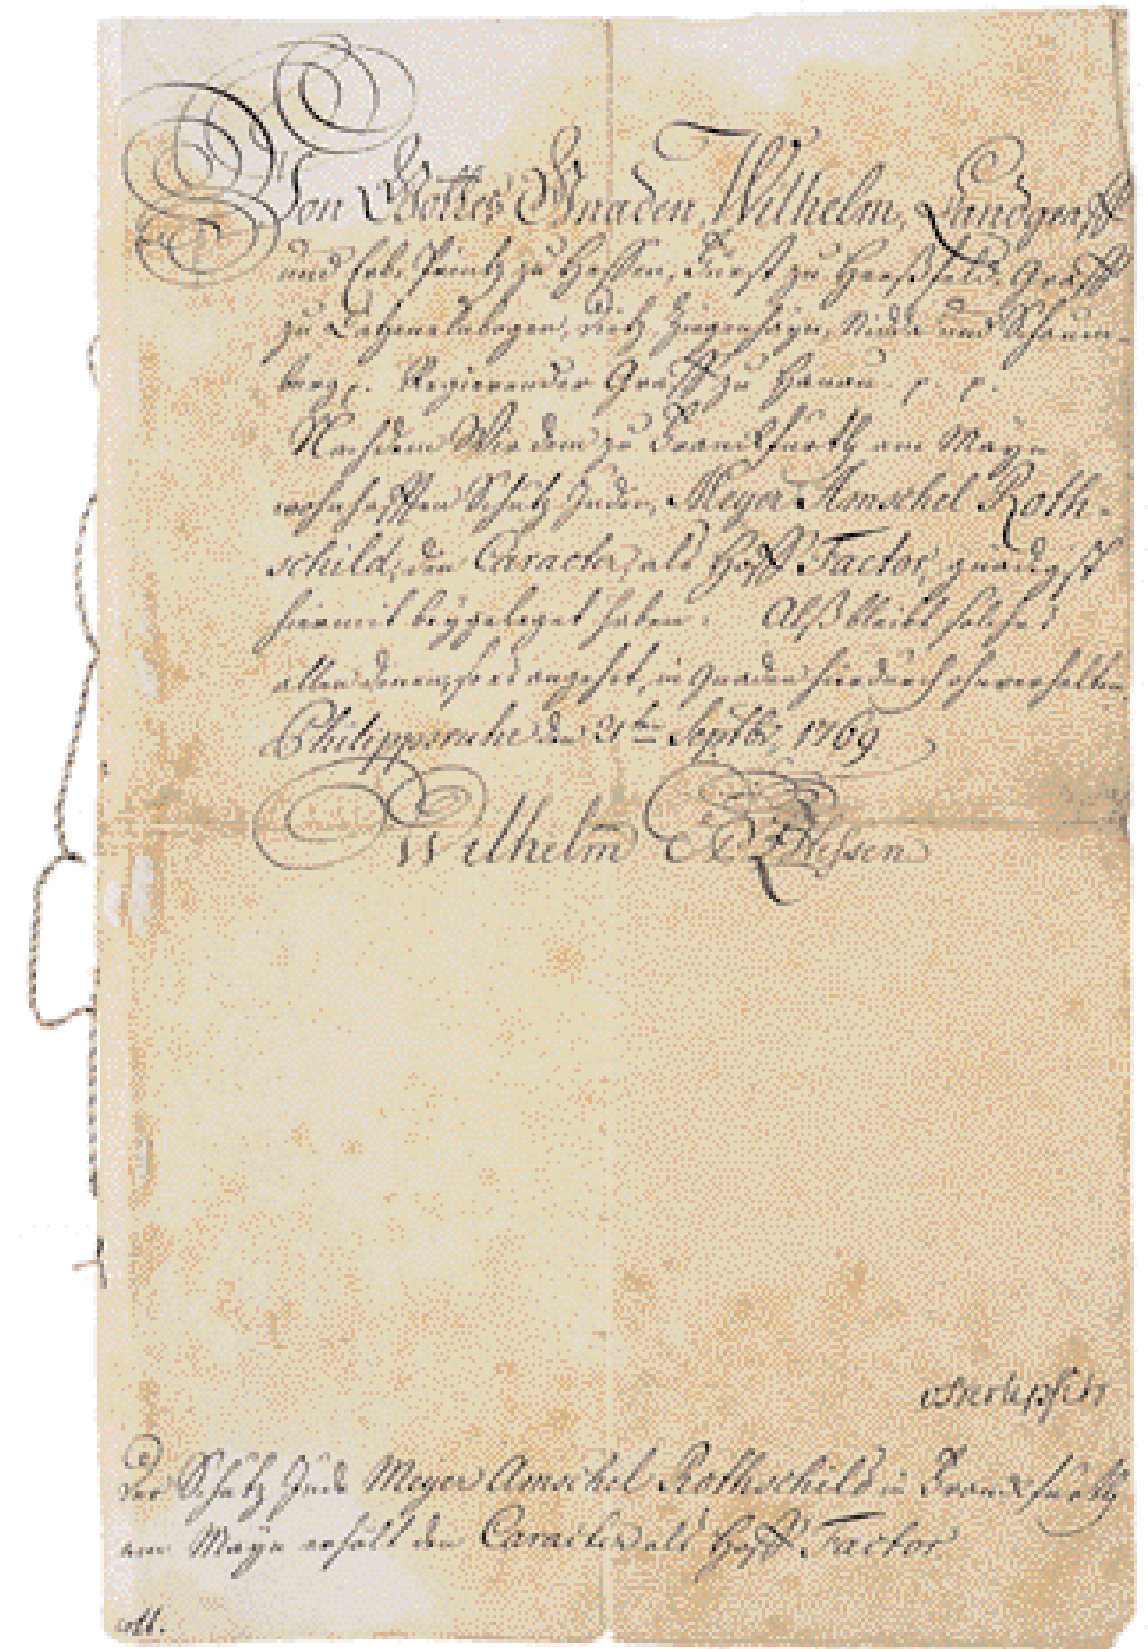 Von Gottes Gnaden, Wilhelm, Landgraff
und Erb-Printz zu Hessen, Fürst zu Herßfeld, Graff
zu Catzenelnbogen, Dietz, Ziegenhayn, Nidda und Schaum-
burg, Regierender Graff zu Hanau. p. p.
Nachdem Wir dem zu Franckfurth am Mayn
wohnhafften Schutz Juden, Meyer Amschel Roth-
schild, den Caracter als Hoff Factor, gnädigst
hiermit beygeleget haben: Alß bleibt solches
allen denen, so es angehet, in Gnaden hierdurch ohnverhalten
Philippsruhe den 21ten Septbr. 1769
Wilhelm E P Hessen
Der Schutz Jude Meyer Amschel Rothschild in Franckfurth
am Mayn erhält den Caracter als Hoff Factor